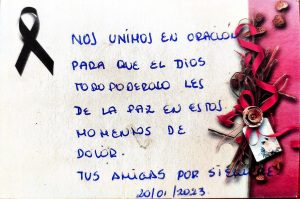 NOS UNIMOS EN ORACIÓN
PARA QUE EL DIOS
TODOPODEROLO LES
DE LA PAZ EN ESTOS
MOMENTOS DE
DOLOR.
TUS AMIGAS POR SIEMPRE
20/01/2023